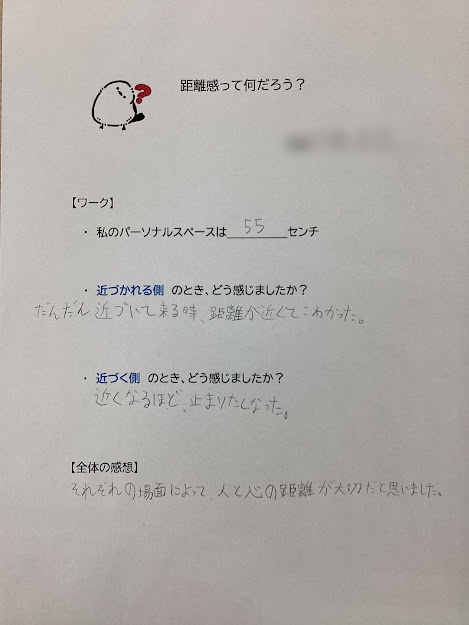 距離感って何だろう？
【ワーク】
・ 私のパーソナルスペースは 55 センチ
・ 近づかれる側 のとき、どう感じましたか？
だんだん近づいて来る時、距離が近くてこわかった。
・ 近づく側 のとき、どう感じましたか？
近くなるほど、止まりたくなった。
【全体の感想】
それぞれの場面によって、人と心の距離が大切だと思いました。